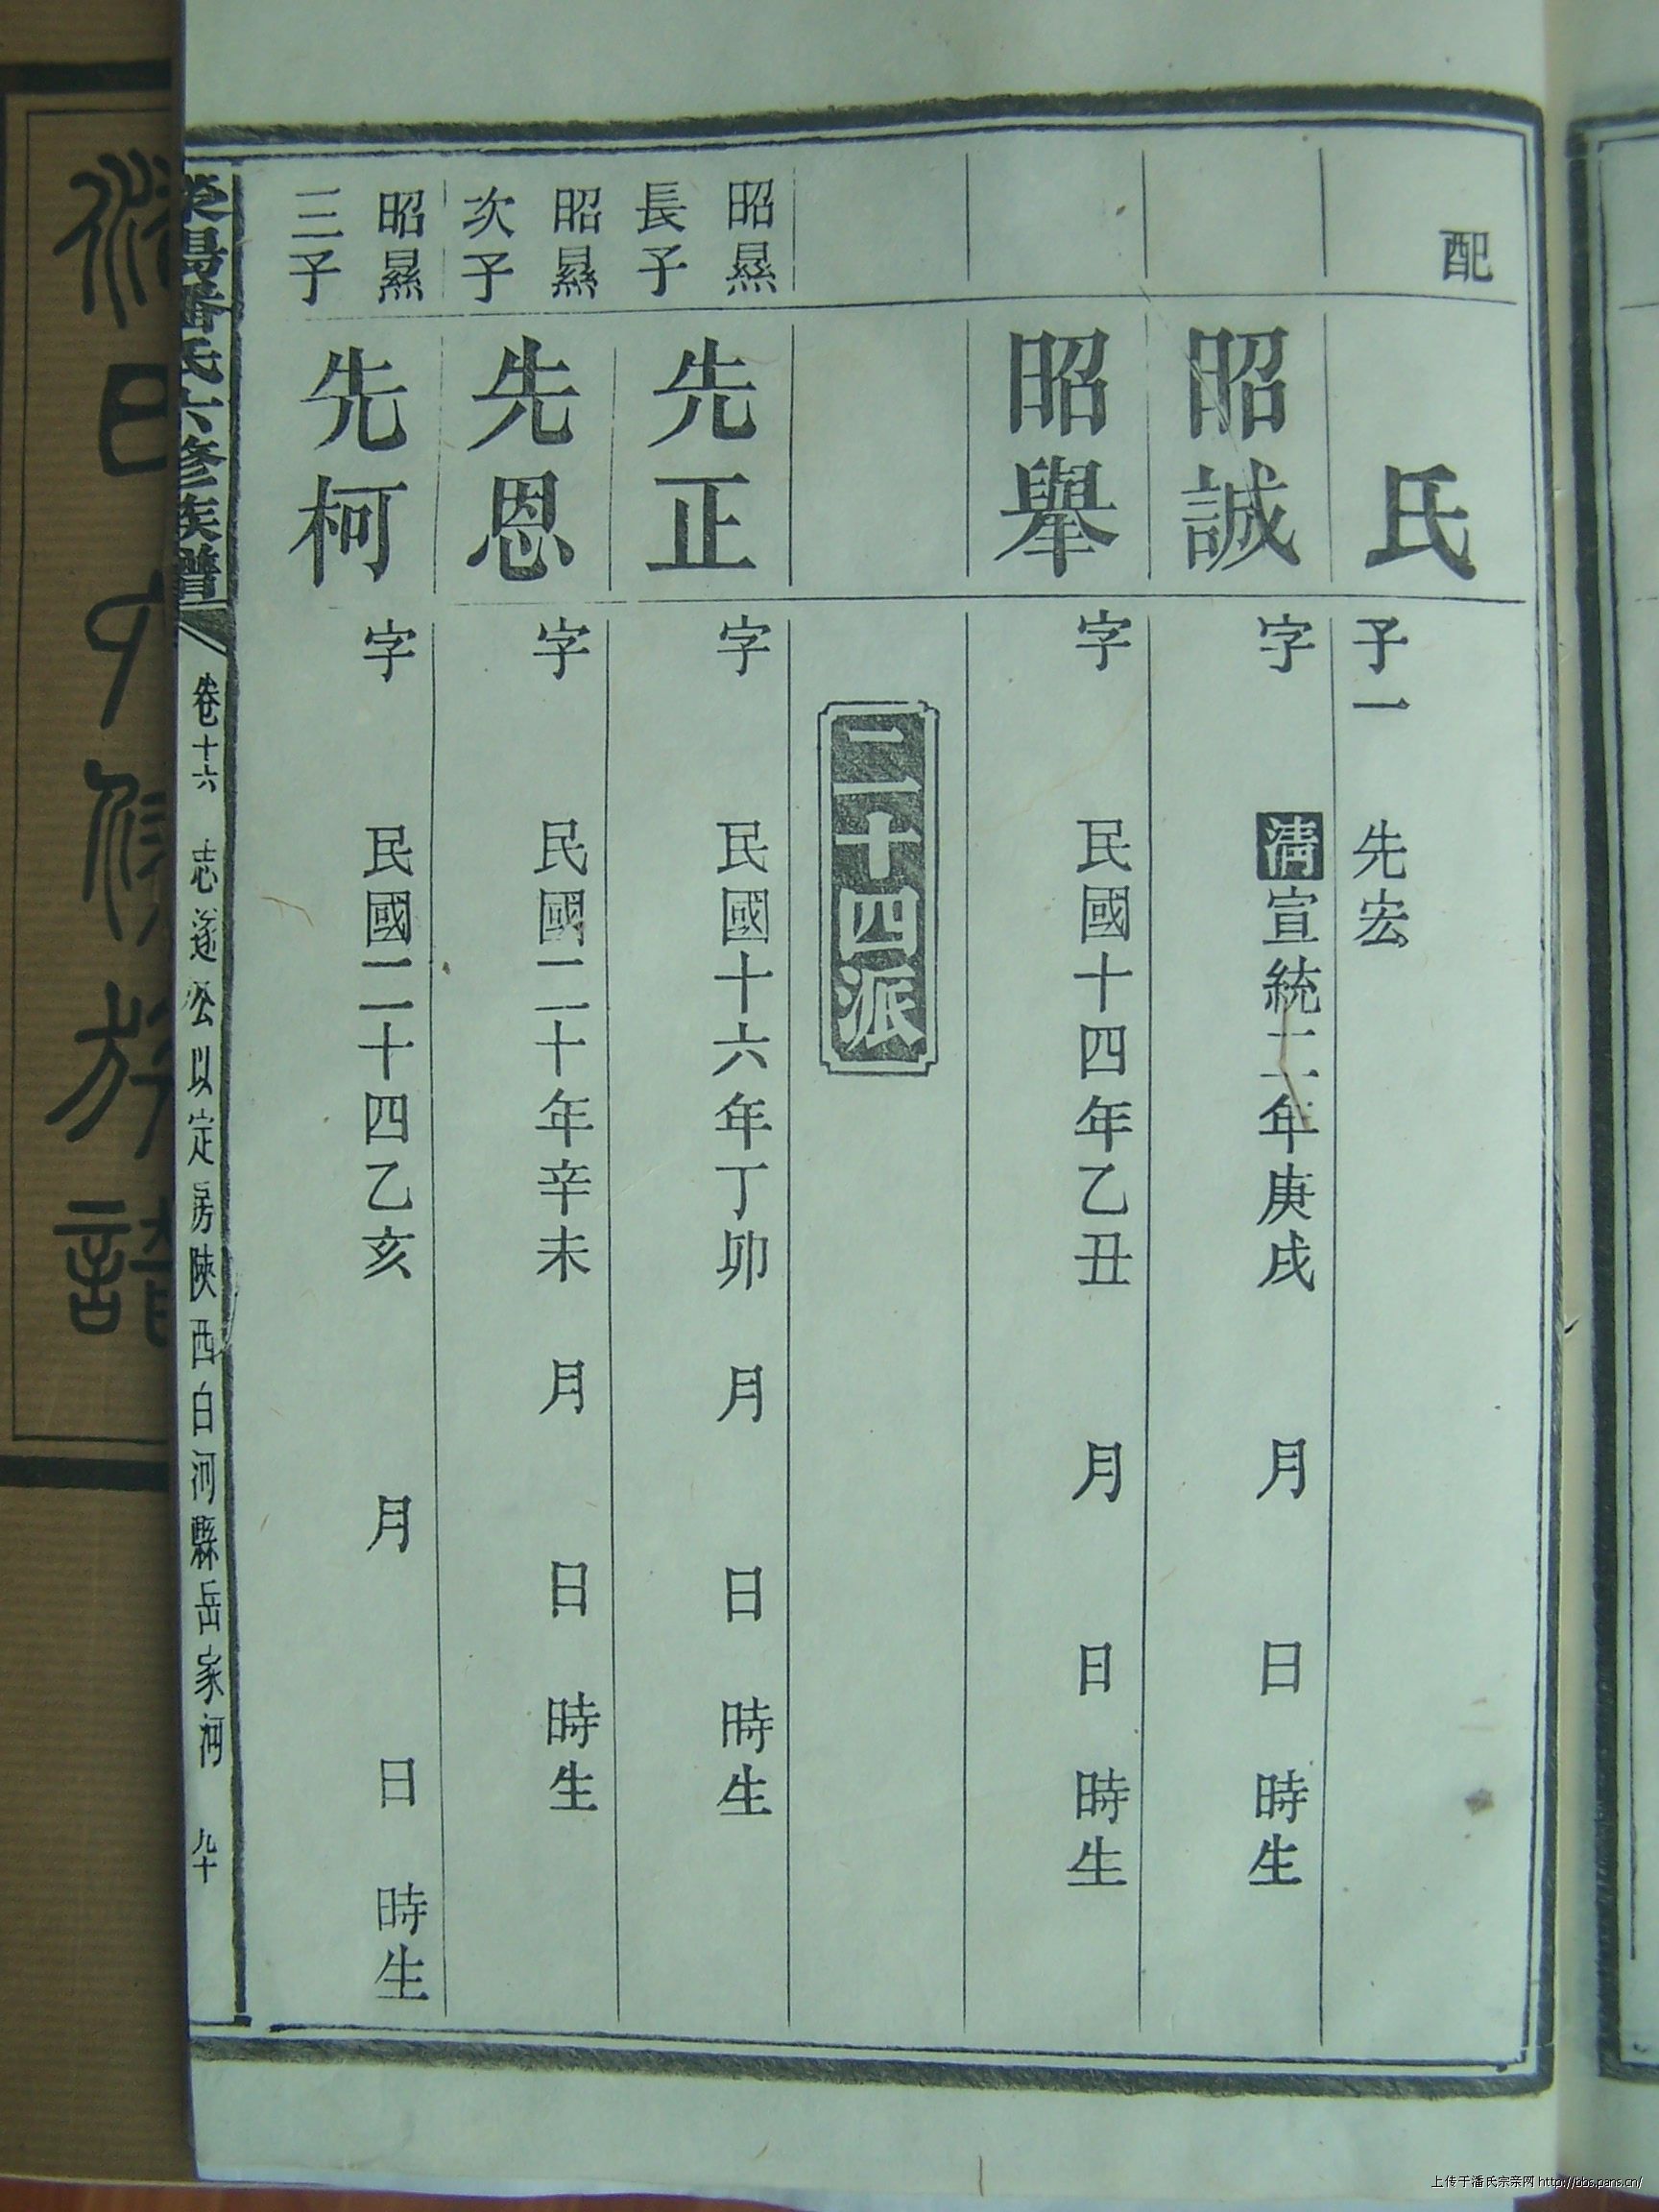 配
氏
子一 先宏
昭誠
字 清宣統二年庚戌 月 日 時生
昭舉
字 民國十四年乙丑 月 日 時生
二十四派
昭㬎
長子
先正
字 民國十六年丁卯 月 日 時生
昭㬎
次子
先恩
字 民國二十年辛未 月 日 時生
昭㬎
三子
先柯
字 民國二十四乙亥 月 日 時生
滎陽潘氏六修族譜 卷十六 志遂公以定房陝西白河縣岳家河 九十
族譜
上传于潘氏宗亲网 http://bbs.pans.cn/